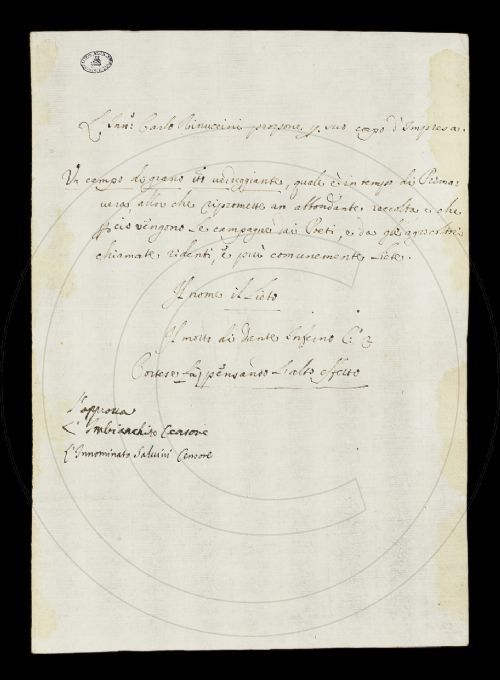 L'Inn.to Carlo Rinuccini propone p. suo corpo d'Impresa.
Un campo di grano verdeggiante, quale è in tempo di Prima-
vera, allor che ripromette un abbondante raccolta e che
p. ciò vengono le campagne dai Poeti, e da gli agricoltori
chiamate ridenti, e più comunemente Liete.
Il nome il Lieto
Il motto di Dante Inferno C. 2
Pensando l'alto effetto
S'approva
L'Imbianchito Censore
L'Innominato Salvini Censore